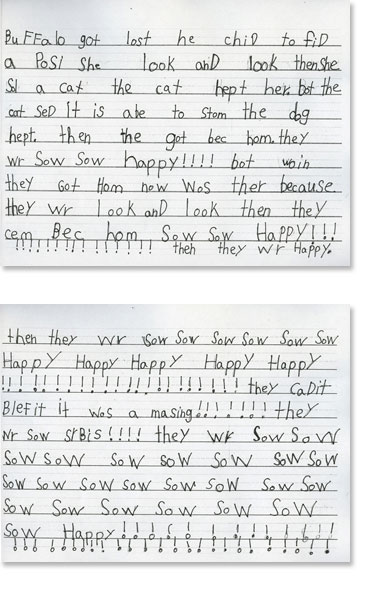 BuFFalo got lost he chiD to fiD
a PoSl She look anD look then she
SI a cat the cat hept her. bot the
cat SeD It is abe to Stom the dog
hept. then the got bec hom. they
wr Sow Sow happy!!!! bot
they Got Hom now WoS ther because
they wr look anD look then they
cem Bec hom Sow Sow HAPPY!!!
!!!!!!!!!!!!!!! then they wr HaPPy.
then they wr Sow Sow Sow Sow Sow Sow
HapPy Happy Happy Happy Happy
!!!!!!!!!!!!!!!!!!! they CaDit
BleFit it was a masing!!!!!!! they
wr Sow SrBis!!!! they wr Sow SoW
SoW SoW SoW SoW SoW SoW SoW
Sow Sow Sow Sow Sow SoW Sow Sow
Sow Sow Sow Sow Sow SoW
Sow Happy!!!!!!!!!!!!